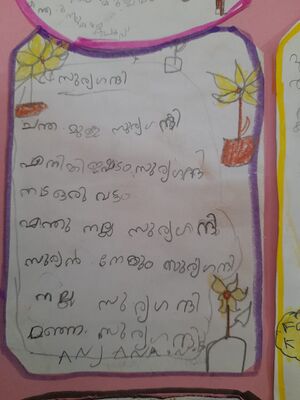 സൂര്യഗന്ധി
ചന്ത മുള്ള സൂര്യഗന്ധി
എനിക്കിഷ്ടം സൂര്യഗന്ധി
നട ഒരു വട്ടം
എന്തു നല്ല സൂര്യഗന്ധി
സൂര്യൻ നോക്കും സൂര്യഗന്ധി
നല്ല സൂര്യഗന്ധി
മഞ്ഞ സൂര്യഗന്ധി
ANJANA